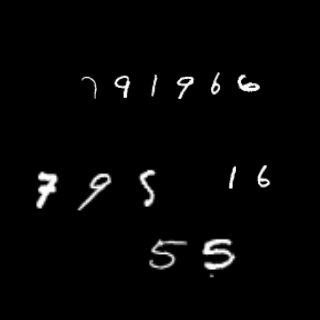 791966
795 16
55